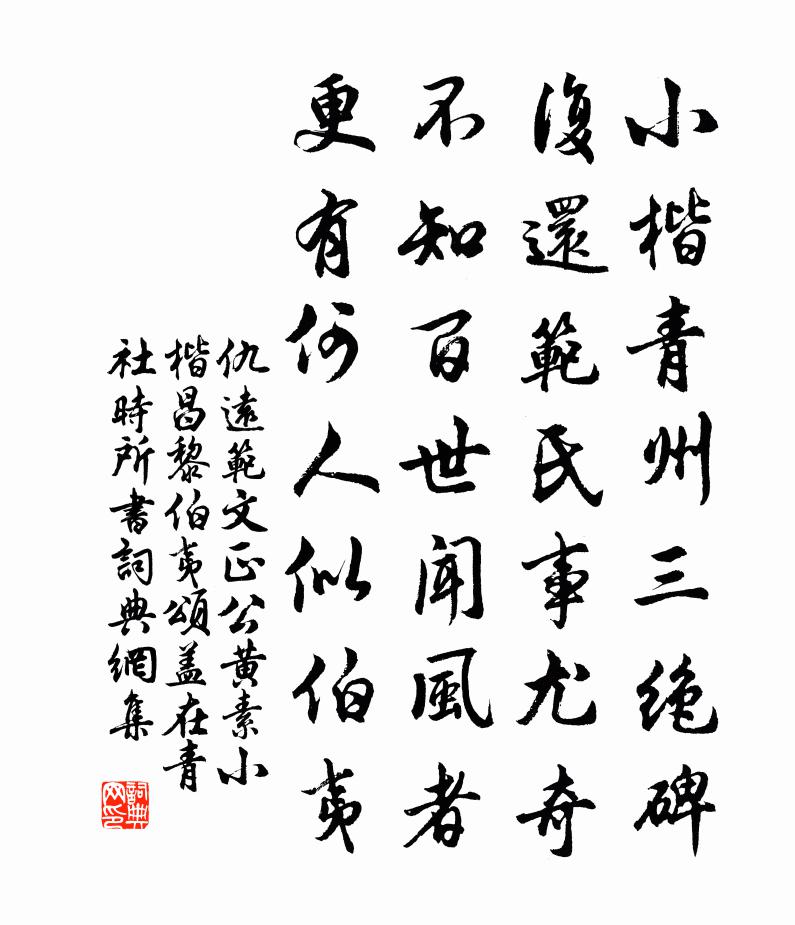 小楷青州三絶碑
復還範氏事尤奇
不知百世聞風者
更有何人似伯夷
仇遠範文正公黃素小
楷昌黎伯夷頌蓋在青
社時所書詞典網集
詞典
网印